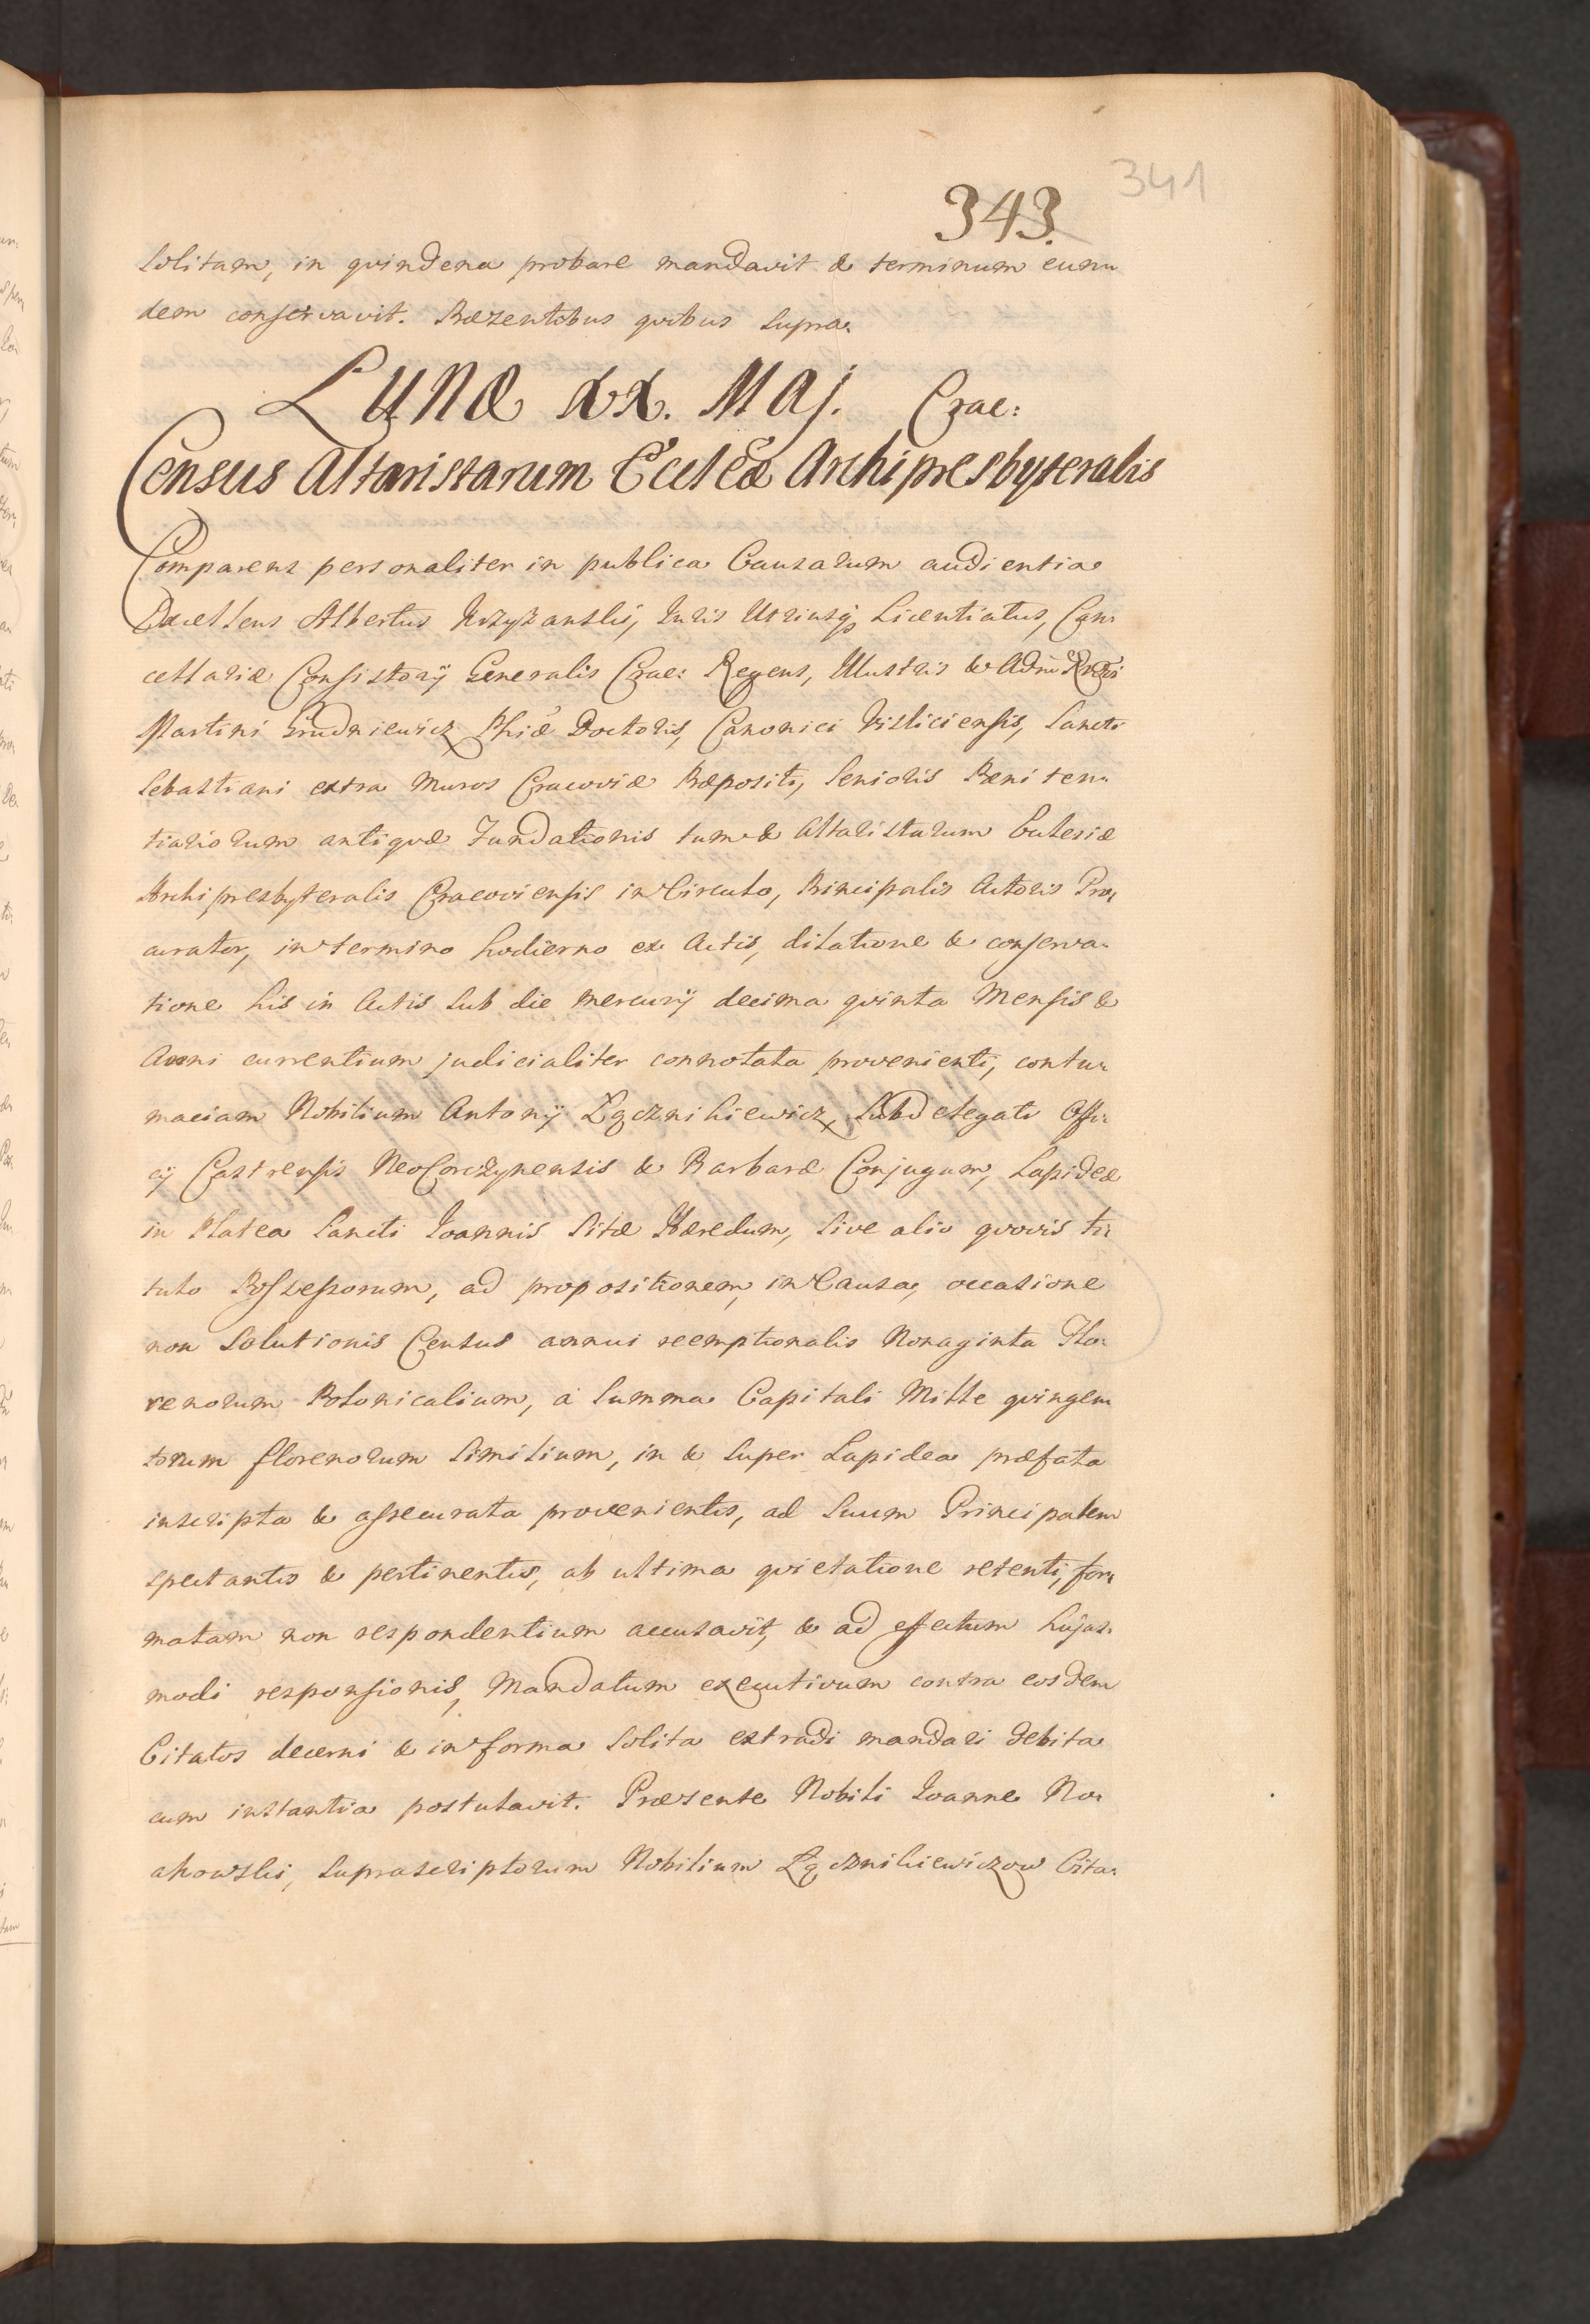 341
343.
Solitam, in qvindena probare mandavit & terminum eun„
dem conservavit. Præzentibus qvibus supra.
Lunæ XX. Maj. Crac:
Census Altaristarum Eccl̃æ Archipresbyteralis
Comparens personaliter in publica Causarum audientia
Excellens Albertus Krzyzanski, Iuris Utriusq̨ Licentiatus, Can„
cellariæ Consistorij Generalis Crac: Regens, Illustris & Adm̃ Rñdi
Martini Grudniewicz Phiæ Doctoris, Canonici Visliciensis, Sancti
Sebastiani extra Muros Cracoviæ Præpositi, Senioris Pæniten„
tiariorum antiqvæ Fundationis tum & Altaristarum Eclesiæ
Archipresbyteralis Cracoviensis in Circulo, Principalis Actoris Pro„
curator, in termino hodierno ex Actis, dilatione & conserva„
tione his in Actis sub die Mercurij decima qvinta Mensis &
Anni currentium judicialiter connotata provenienti, contu„
maciam Nobilium Antonij Łącznikiewicz, Subdelegati Offi„
cij Castrensis NeoCorczynensis & Barbaræ Conjugum, Lapideæ
in Platea Sancti Ioannis sitæ Hæredum, sive alio qvovis ti„
tulo Possessorum, ad propositionem, in Causa, occasione
non Solutionis Census annui reemptionalis Nonaginta Flo„
renorum Polonicalium, à Summa Capitali Mille qvingen„
torum florenorum similium, in & super Lapidea præfata
inscripta & assecurata provenientis, ad Suum Principalem
spectantis & pertinentis, ab ultima qvietatione retenti, for„
matam non respondentium accusavit, & ad effectum hujus„
modi responsionis, Mandatum executivum contra eosdem
Citatos decerni & in forma Solita extradi mandari debita
cum instantia postulavit. Præsente Nobili Ioanne No„
akowski, Suprascriptorum Nobilium Łącznikiewiczow Cita„